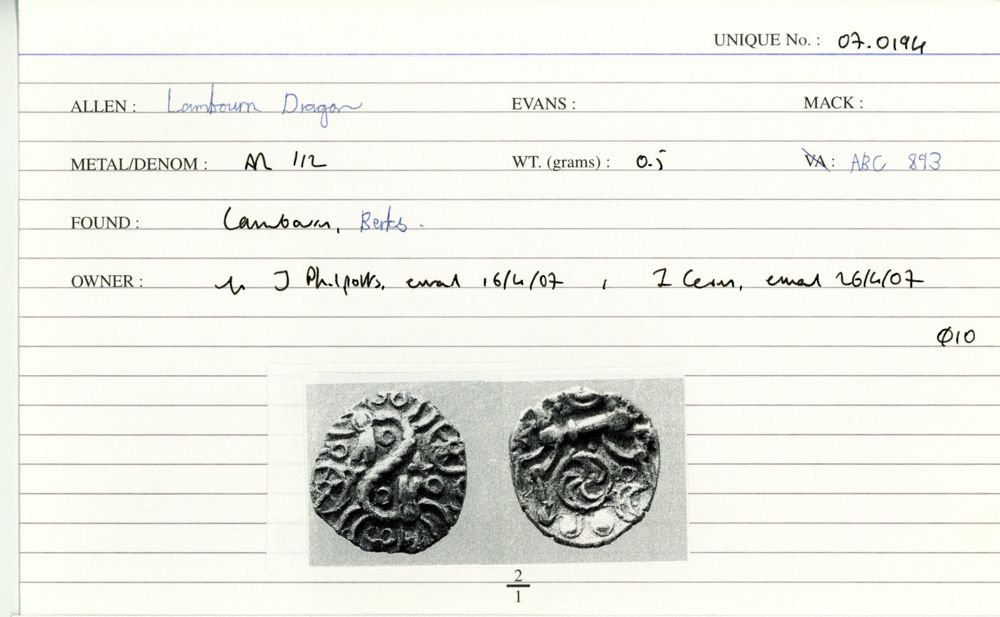 UNIQUE No. : 07.0194
ALLEN : Lambourn Dragon EVANS : MACK :
METAL/DENOM : AR 1/2 WT. (grams) : 0.5 VA : ABC 893
FOUND : Lambourn, Berks.
OWNER : J Philpotts, email 16/4/07 ; I Cein, email 26/4/07
Ø10
2
1